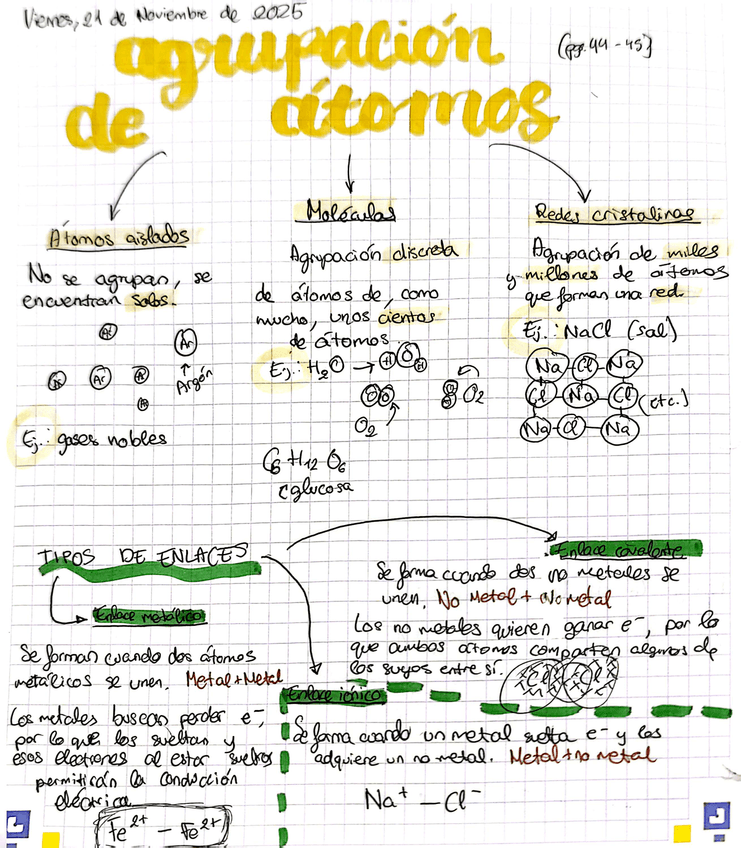 Viernes, 21 de Noviembre de 2025
agrupación
(pg. 44 - 45)
de átomos
Átomos aislados
No se agrupan, se
encuentran solos.
Ar
Ar
Ar
Ar
Ar
Ar
Argón
Ej.: gases nobles
Moléculas
Agrupación discreta
de átomos de, como
mucho, unos cientos
de átomos
Ej.: H₂O → H O H
O O
O₂
8 O₂
C₆ H₁₂ O₆
glucosa
Redes cristalinas
Agrupación de miles
y millones de átomos
que forman una red.
Ej.: NaCl (sal)
Na - Cl - Na
Cl - Na - Cl (etc.)
Na - Cl - Na
TIPOS DE ENLACES
Enlace metálico
Se forman cuando dos átomos
metálicos se unen. Metal + Metal
Los metales buscan perder e⁻,
por lo que los sueltan y
esos electrones al estar sueltos
permitirán la conducción
eléctrica
Fe²⁺ - Fe²⁺
Enlace covalente
Se forma cuando dos no metales se
unen. No Metal + No metal
Los no metales quieren ganar e⁻, por lo
que ambos átomos comparten algunos de
los suyos entre sí.
Cl Cl
Enlace iónico
Se forma cuando un metal suelta e⁻ y los
adquiere un no metal. Metal + no metal
Na⁺ - Cl⁻